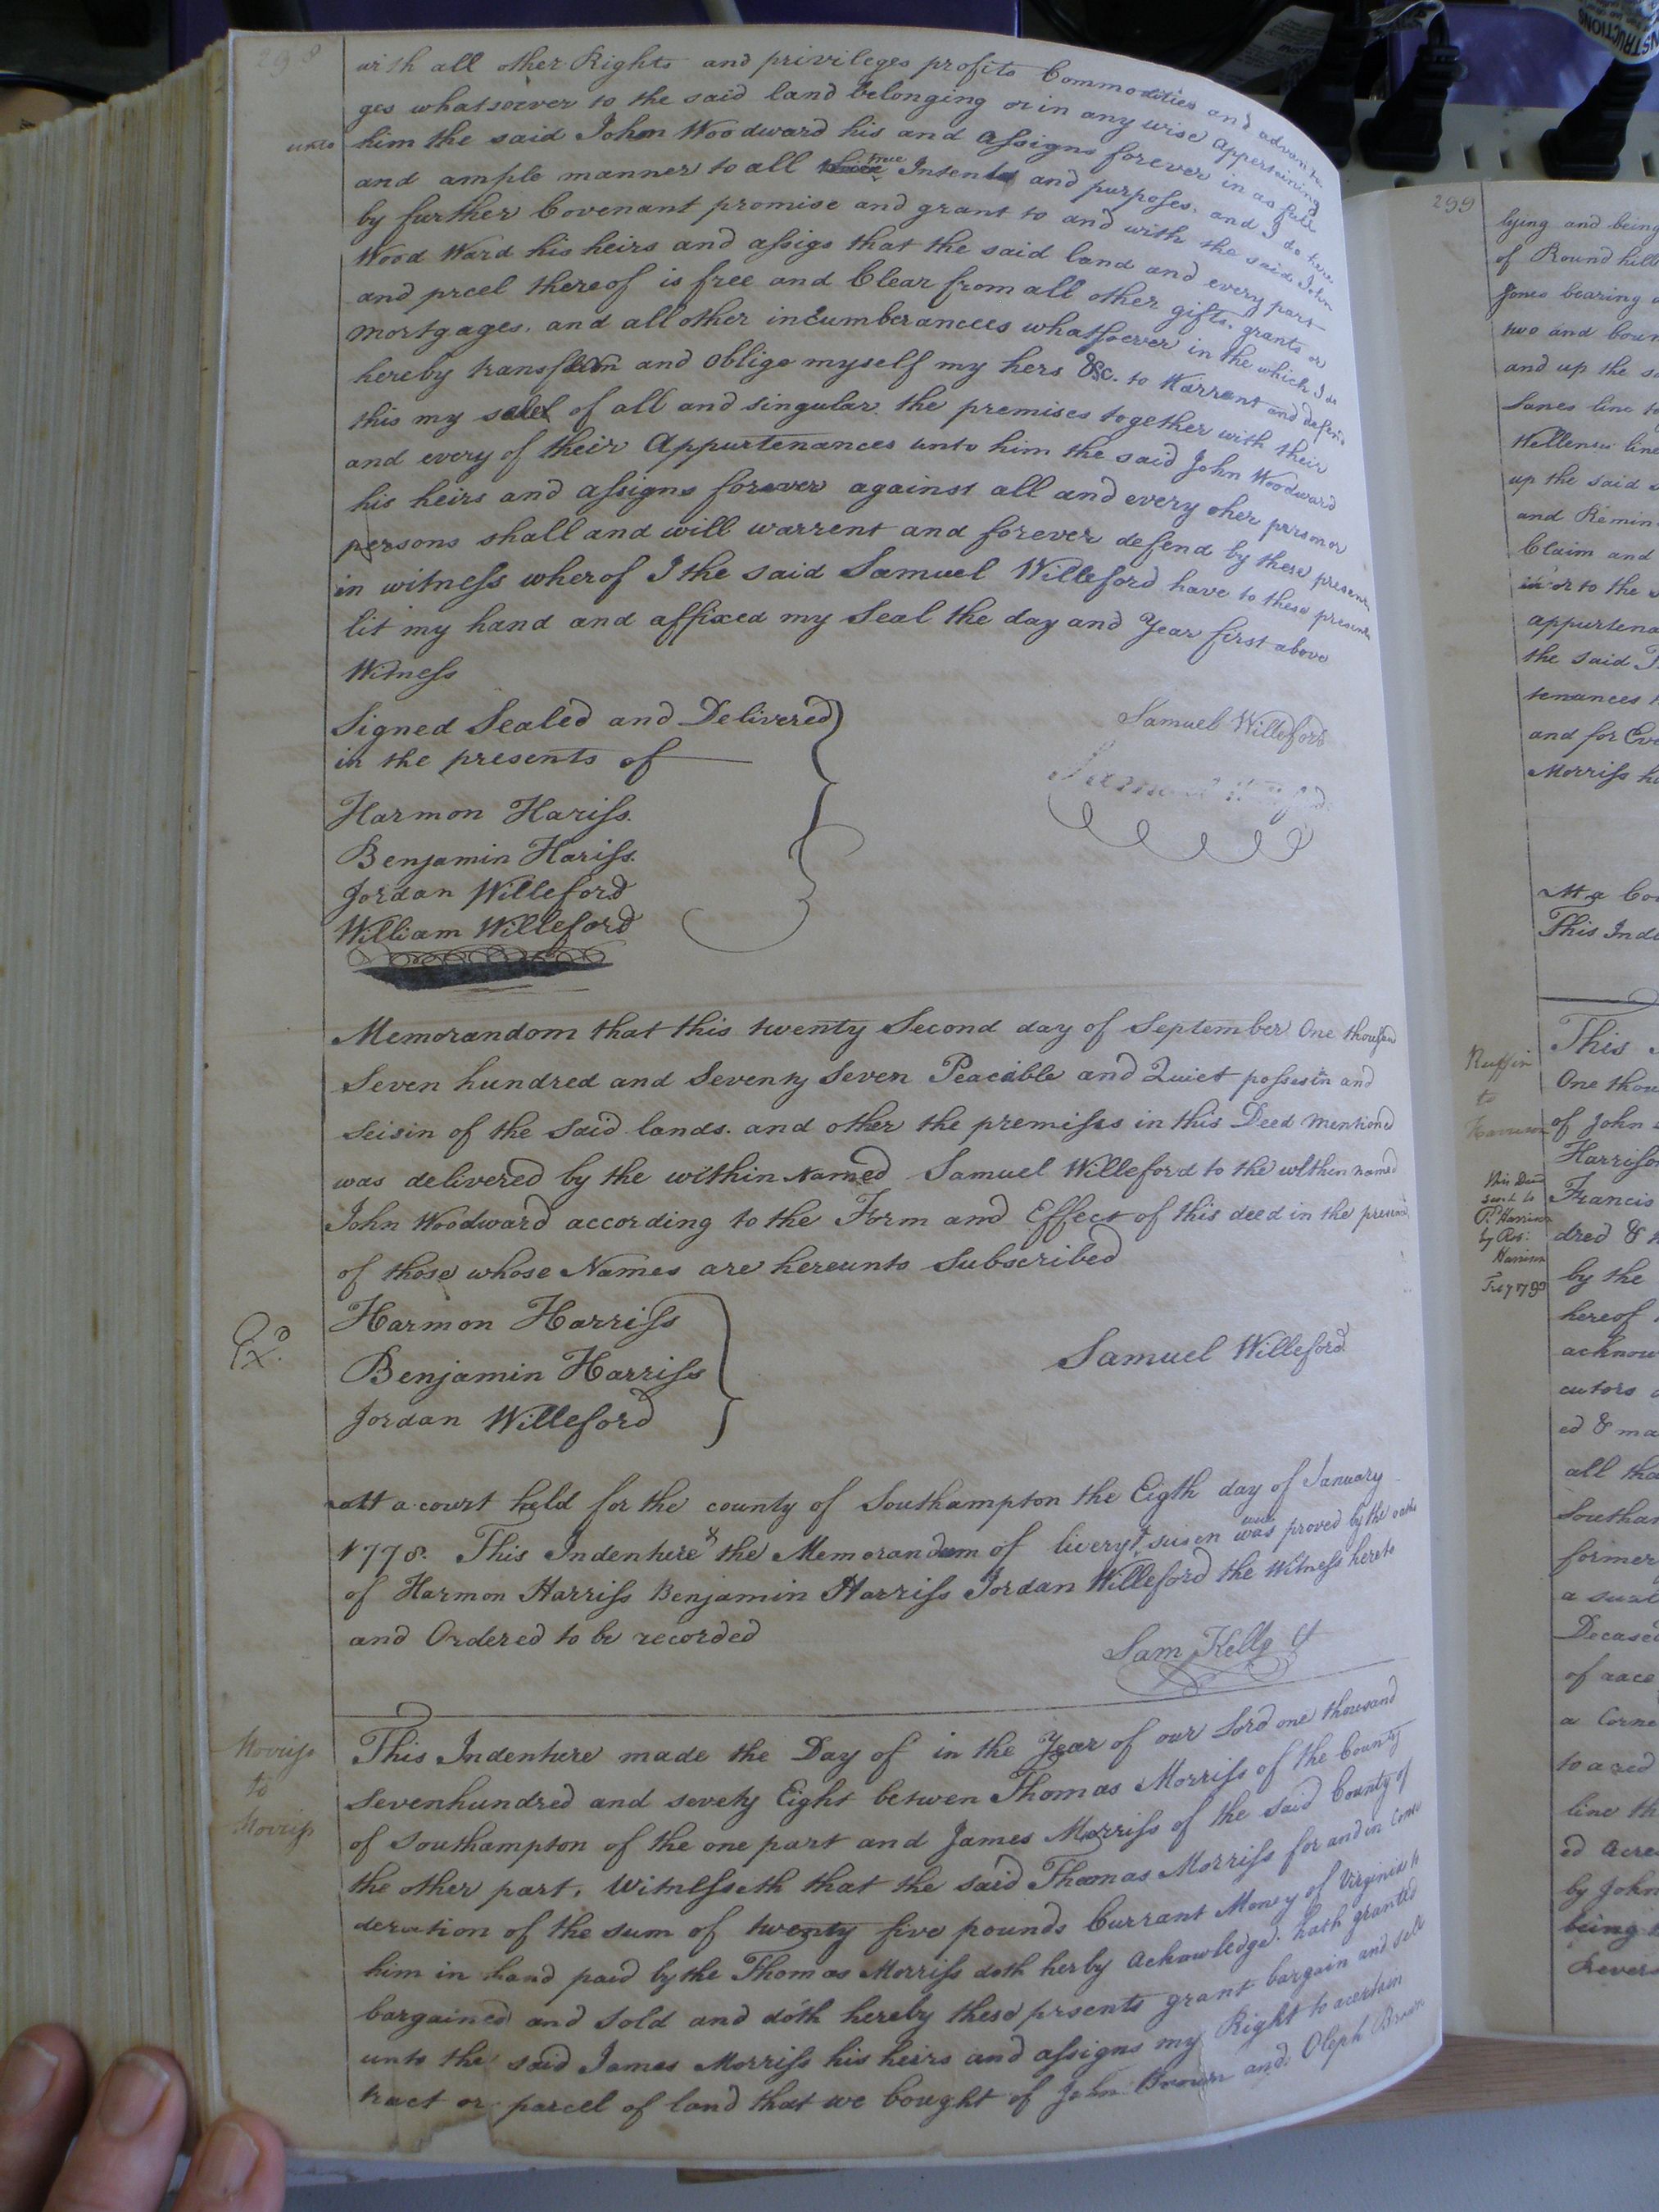 298
with all other Rights and privileges profits Commodities and advanta
ges whatsoever to the said land belonging or in any wise appertaining
unto him the said John Woodward his and assigns forever in as full
and ample manner to all true Intents and purposes, and I do here
by further Covenant promise and grant to and with the said John
Wood Ward his heirs and assigs that the said land and every part
and prcel thereof is free and Clear from all other gifts, grants or
mortgages, and all other incumberancees whatsoever in the which I do
hereby and oblige myself my hers &c. to Warrent and defend
this my of all and singular the premises together with their
and every of their Appurtenances unto him the said John Woodward
his heirs and assigns forever against all and every oher person or
persons shall and will warrent and forever defend by these presents
in witness wherof I the said Samuel Willeford have to these presents
sit my hand and affixed my Seal the day and Year first above
Witness
Signed Sealed and Delivered
in the presents of
Samuel Willeford
Harmon Hariss.
Benjamin Hariss.
Jordan Willeford
William Willeford
Memorandom that this twenty Second day of September One thousand
Seven hundred and Seventy Seven Peaceible and Quiet possesin and
Seisin of the Said lands. and other the premises in this Deed mentioned
was delivered by the within Named Samuel Willeford to the within named
John Woodward according to the Form and Effect of this deed in the
of those whose Names are hereunto Subscribed
Harmon Harriss
Exd.
Benjamin Harriss
Samuel Willeford
Jordan Willeford
Att a court held for the county of Southampton the Eigth day of January
1778. This Indenture & the Memorandum of livery & was proved by the oaths
of Harmon Harriss Benjamin Harriss Jordan Willeford the Witness hereto
and Ordered to be recorded
Sam Kello Ct
Morriss
to
Morriss
This Indenture made the Day of in the Year of our Lord one thousand
Sevenhundred and sevety Eight betwen Thomas Morriss of the County
of Southampton of the one part and James Morriss of the said County of
the other part, Witnesseth that the said Thomas Morriss for and in Consi
deration of the sum of twenty five pounds Currant Money of Virginia to
him in hand paid by the Thomas Morriss doth herby Acknowledge. hath granted
bargained and Sold and doth hereby these prsents grant bargain and sell
unto the said James Morriss his heirs and assigns my Right to acertain
tract or parcel of land that we bought of John Brown and Oleph Brown
299
lying and being
of Round hill
Jones bearing
two and boun
and up the
Lanes line
line
up the said
and Remin
Claim and
in or to the
appurtena
the said
tenances
and for Eve
Morriss
Att a Cou
This Inde
Ruffin
to
Harrison
this Deed
sent to
P. Harrison
by Rob:
Harrison
This
One thou
of John
Harrison
Francis
dred &
by the
hereof
acknow
cutors
ed & ma
all tha
Southam
former
Deceased
of
a Corne
to a red
line th
ed Acre
by John
being
Revers